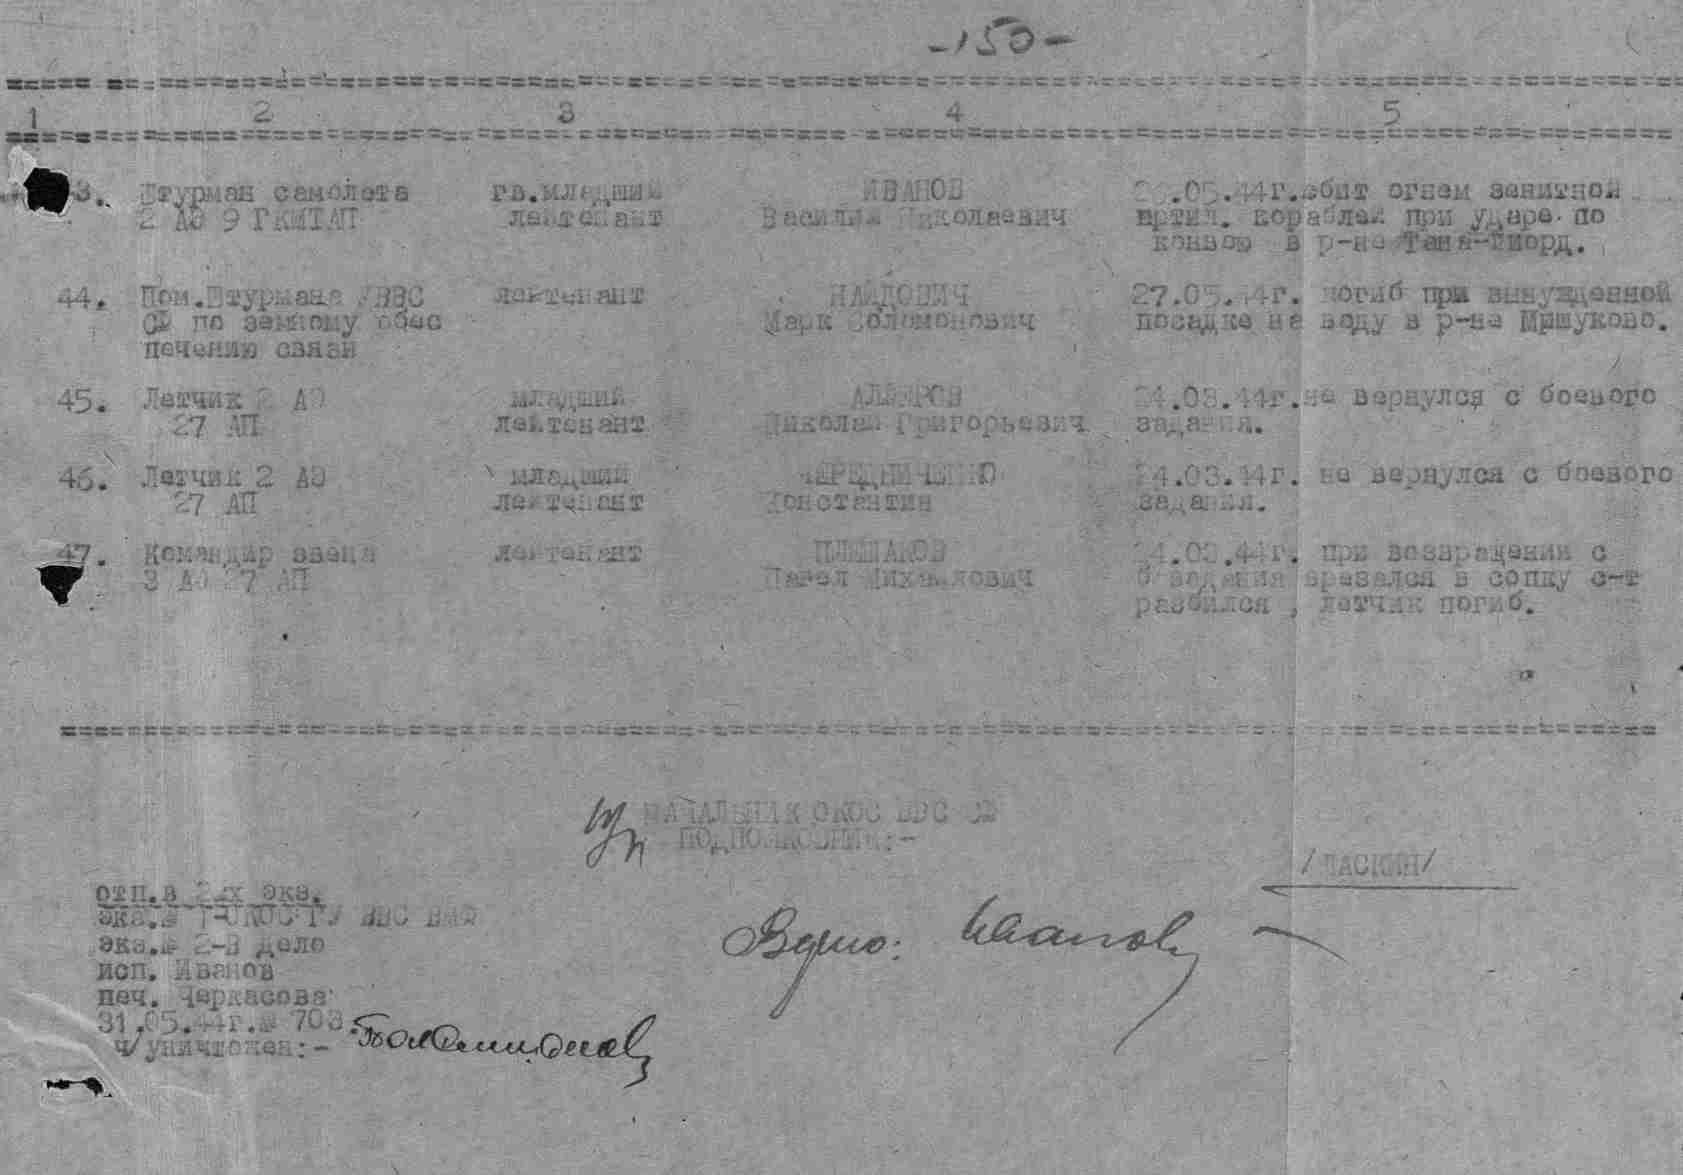 -150-
1 2 3 4 5
43. Штурман самолета гв.младший ИВАНОВ 26.05.44г.сбит огнем зенитной
2 АЭ 9 ГКМТАП лейтенант Василий Николаевич артил. кораблей при ударе по
конвою в р-не Тана-Фиорд.
44. Пом.Штурмана УВВС лейтенант НАЙДОВИЧ 27.05.44г. погиб при вынужденной
СФ по земному обес Марк Соломонович посадке на воду в р-не Мишуково.
печению связи
45. Летчик 2 АЭ младший 24.03.44г.не вернулся с боевого
27 АП лейтенант Николай Григорьевич задания.
46. Летчик 2 АЭ младший ЧЕРЕДНИЧЕНКО 24.03.44г. не вернулся с боевого
27 АП лейтенант Константин задания.
47. Командир звена лейтенант ПЛЕШАКОВ 24.03.44г. при возвращении с
3 АЭ 27 АП Павел Михайлович б/задания врезался в сопку с-т
разбился , летчик погиб.
НАЧАЛЬНИК ОКОС ВВС СФ
ПОДПОЛКОВНИК:-
/ЛАСКИН/
отп.в 2-х экз.
экз.№ 1-ОКОС ГУ ВВС ВМФ
экз.№ 2-В дело
исп. Иванов
печ. Черкасова
31.05.44г.№ 703.
ч/уничтожен:-
Верно: Иванов